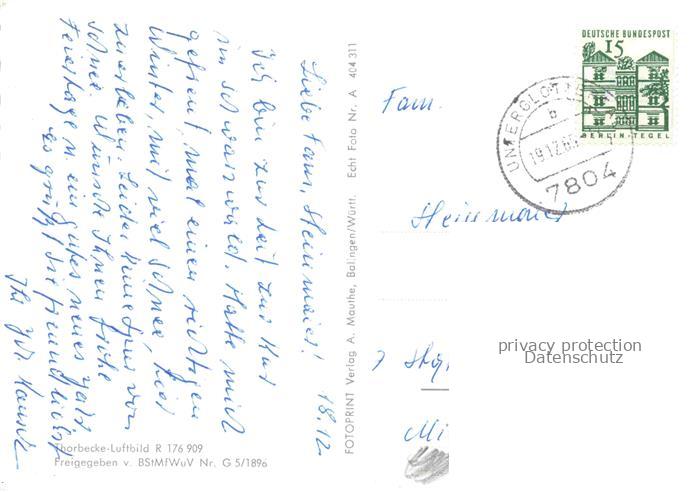 18.12.
Liebe Fam. Steinmaier!
Ich bin zur Zeit zur Kur
im Schwarzwald. Hatte mich
gefreut, mal einen richtigen
Winter, mit viel Schnee, hier
zu erleben. Leider keine Spur von
Schnee. Wünsche Ihnen frohe
Feiertage u. ein gutes neues Jahr
Es grüßt Sie freundlichst
Ihr
Thorbecke-Luftbild R 176 909
Freigegeben v. BStMfWuV Nr. G 5/1896
FOTOPRINT Verlag A. Mauthe, Balingen/Württ. Echt Foto Nr. A 404 311
DEUTSCHE BUNDESPOST
15
BERLIN-TEGEL
b
7804
Fam.
Steinmaier
7
privacy protection
Datenschutz